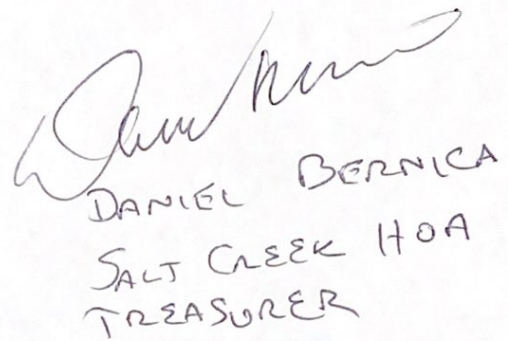 DANIEL BERNICA
SALT CREEK HOA
TREASURER